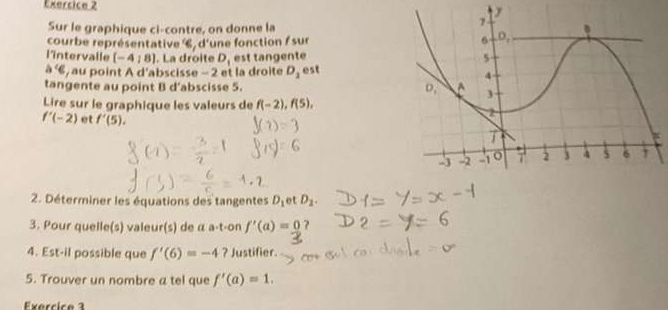 Exercice 2
Sur le graphique ci-contre, on donne la
courbe représentative 𝒞f d'une fonction f sur
l'intervalle [-4 ; 8]. La droite D₁ est tangente
à 𝒞f au point A d'abscisse -2 et la droite D₂ est
tangente au point B d'abscisse 5.
Lire sur le graphique les valeurs de f(-2), f(5),
f'(-2) et f'(5).
f(2)=3
f(5)=6
2. Déterminer les équations des tangentes D₁ et D₂.
D1= Y=x-1
3. Pour quelle(s) valeur(s) de a a-t-on f'(a) = 0 ?
D2 = y= 6
3
4. Est-il possible que f'(6) = -4 ? Justifier.
5. Trouver un nombre a tel que f'(a) = 1.
Exercice 3
y
7
6
5
4
3
2
D₁
A
B
-3 -2 -1 0 1 2 3 4 5 6 7